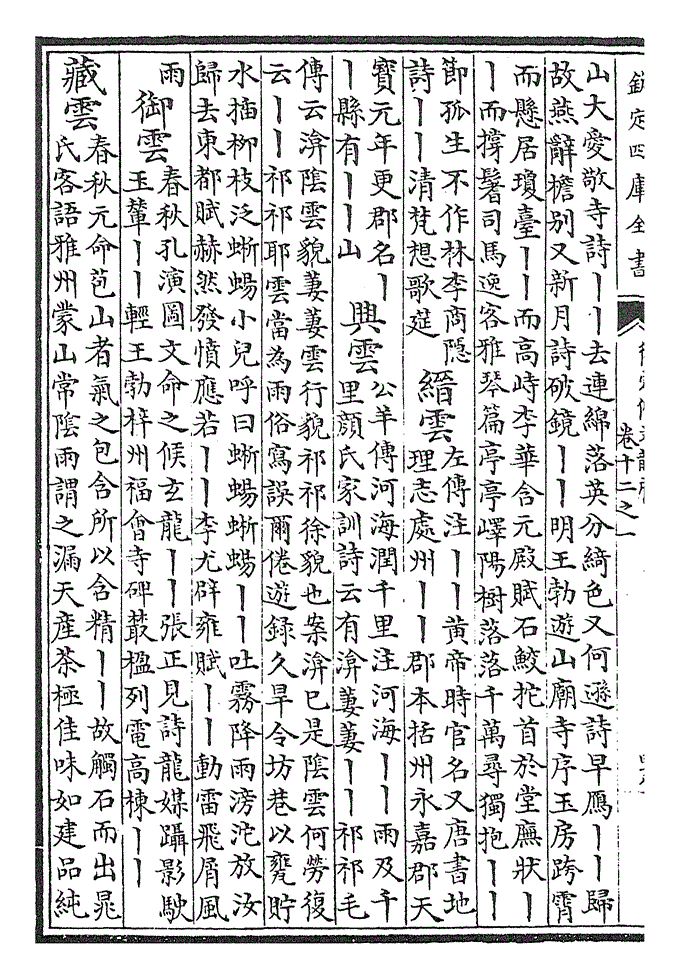 欽定四庫全書
卷十二之一
山大愛敬寺詩丨丨去連綿落英分綺色又何遜詩早鴈丨丨歸
故燕辭檐別又新月詩破鏡丨丨明王勃遊山廟寺序玉房跨霄
而懸居瓊臺丨丨而高峙李華含元殿賦石鮫挓首於堂廡狀丨
丨而撐鬐司馬逸客雅琴篇亭亭嶧陽樹落落千萬尋獨抱丨丨
節孤生不作林李商隐
詩丨丨清梵想歌筵
縉雲
左傳注丨丨黄帝時官名又唐書地
理志處州丨丨郡本括州永嘉郡天
寳元年更郡名丨
丨縣有丨丨山
興雲
公羊傳河海潤千里注河海丨丨雨及千
里顔氏家訓詩云有渰萋萋丨丨祁祁毛
傳云渰陰雲貌萋萋雲行貌祁祁徐貌也案渰已是陰雲何勞復
云丨丨祁祁耶雲當為雨俗寫誤爾倦遊録久旱令坊巷以甕貯
水揷柳枝泛蜥蜴小兒呼曰蜥蜴蜥蜴丨丨吐霧降雨滂沱放汝
歸去東都賦赫然發憤應若丨丨李尤辟雍賦丨丨動雷飛屑風
雨
御雲
春秋孔演圖文命之候玄龍丨丨張正見詩龍媒躡影駛
玉輦丨丨輕王勃梓州福會寺碑叢楹列電高棟丨丨
藏雲
春秋元命苞山者氣之包含所以含精丨丨故觸石而出晁
氏客語雅州蒙山常陰雨謂之漏天産茶極佳味如建品純